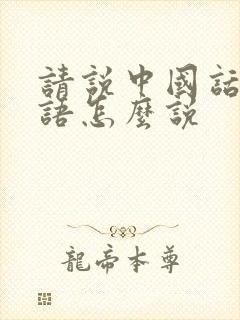 請說中國話
語怎麼說
龍帝本尊